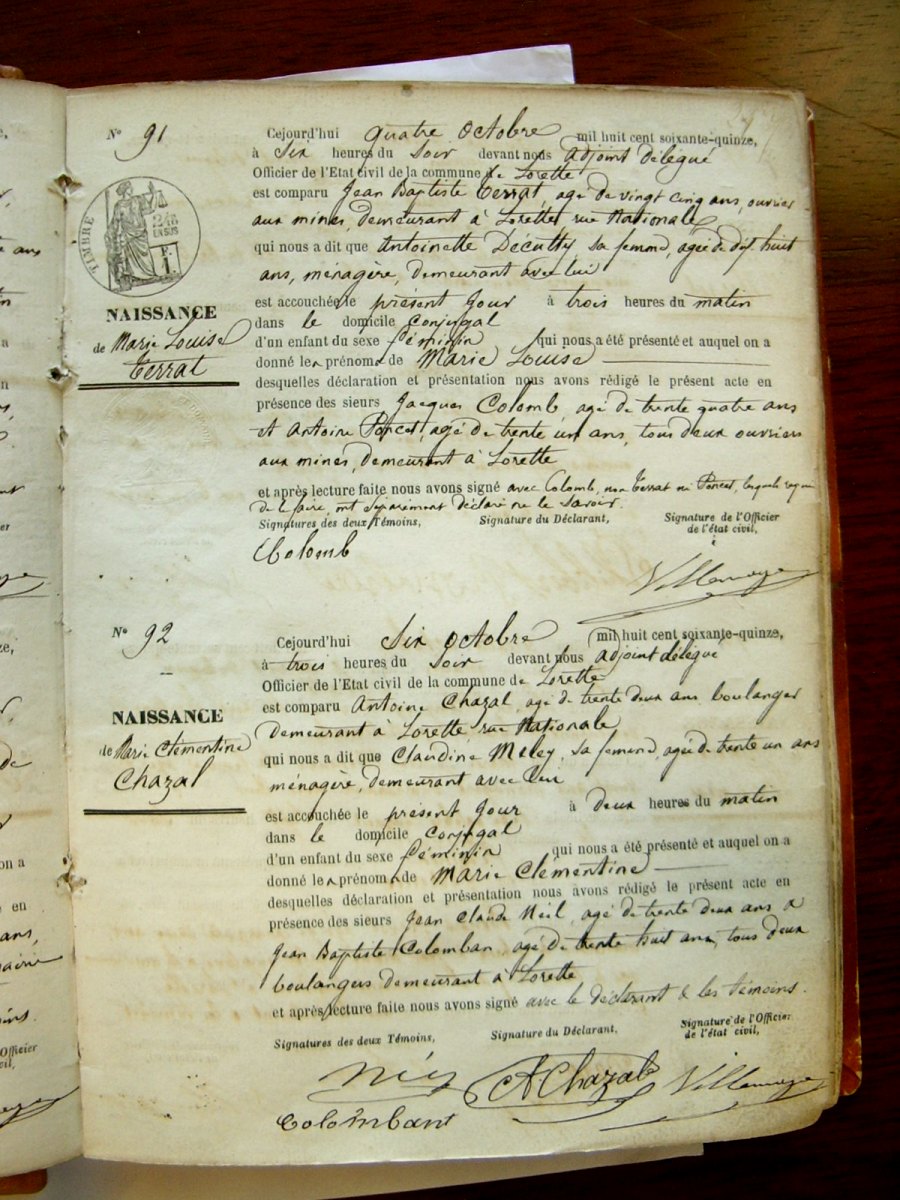 N° 91
TIMBRE
2/10
EN SUS
NAISSANCE
de Marie Louise
Terrat
Cejourd'hui quatre octobre mil huit cent soixante-quinze,
à six heures du soir devant nous adjoint délégué
Officier de l'Etat civil de la commune de Lorette
est comparu Jean Baptiste Terrat, agé de vingt cinq ans, ouvrier
aux mines, demeurant à Lorette rue Nationale
qui nous a dit que Antoinette sa femme, agée de dix huit
ans, ménagère, demeurant avec lui
est accouchée le présent jour à trois heures du matin
dans le domicile conjugal
d'un enfant du sexe féminin qui nous a été présenté et auquel on a
donné les prénoms de Marie Louise
desquelles déclaration et présentation nous avons rédigé le présent acte en
présence des sieurs Jacques Colomb, agé de trente quatre ans
et Antoine Poncet, agé de trente un ans, tous deux ouvriers
aux mines, demeurant à Lorette
et après lecture faite nous avons signé avec Colomb, non Terrat ni Poncet, lesquels requis
de le faire, ont séparément déclaré ne le savoir.
Signatures des deux Témoins, Signature du Déclarant, Signature de l'Officier
de l'état civil,
Colomb
N° 92
NAISSANCE
de Marie Clémentine
Chazal
Cejourd'hui six octobre mil huit cent soixante-quinze,
à trois heures du soir devant nous adjoint délégué
Officier de l'Etat civil de la commune de Lorette
est comparu Antoine Chazal, agé de trente deux ans boulanger
demeurant à Lorette rue Nationale
qui nous a dit que Claudine Meley, sa femme, agée de trente un ans
ménagère, demeurant avec lui
est accouchée le présent jour à deux heures du matin
dans le domicile conjugal
d'un enfant du sexe féminin qui nous a été présenté et auquel on a
donné les prénoms de Marie Clémentine
desquelles déclaration et présentation nous avons rédigé le présent acte en
présence des sieurs Jean Claude agé de trente deux ans &
Jean Baptiste Colomban, agé de trente huit ans, tous deux
boulangers demeurant à Lorette
et après lecture faite nous avons signé avec le déclarant & les témoins.
Signatures des deux Témoins, Signature du Déclarant, Signature de l'Officier
de l'état civil,
A Chazal
Colombant